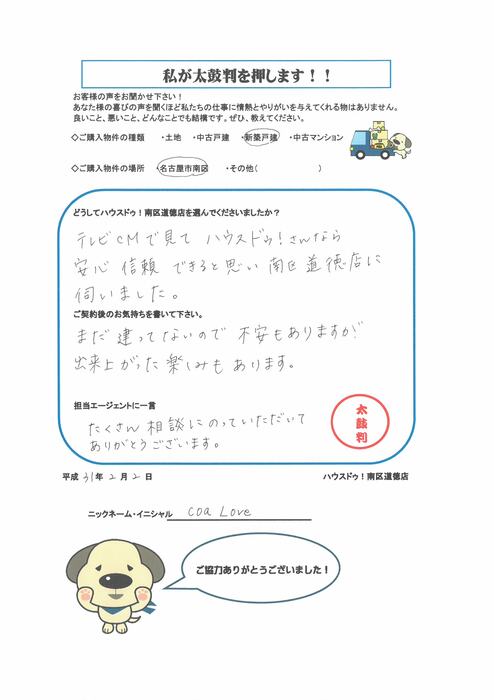 私が太鼓判を押します！！
お客様の声をお聞かせ下さい！
あなた様の喜びの声を聞くほど私たちの仕事に情熱とやりがいを与えてくれる物はありません。
良いこと、悪いこと、どんなことでも結構です。ぜひ、教えてください。
◇ご購入物件の種類 ・土地 ・中古戸建 ・新築戸建 ・中古マンション
◇ご購入物件の場所 ・名古屋市南区 ・その他( )
どうしてハウスドゥ！南区道徳店を選んでくださいましたか？
テレビCMで見て ハウスドゥ！さんなら
安心 信頼 できると思い 南区 道徳店に
伺いました。
ご契約後のお気持ちを書いて下さい。
まだ 建ってないので 不安もありますが
出来上がった 楽しみも あります。
担当エージェントに一言
たくさん 相談にのっていただいて
ありがとうございます。
太鼓判
平成 31年 2月 2日 ハウスドゥ！南区道徳店
ニックネーム・イニシャル coa Love
ご協力ありがとうございました！